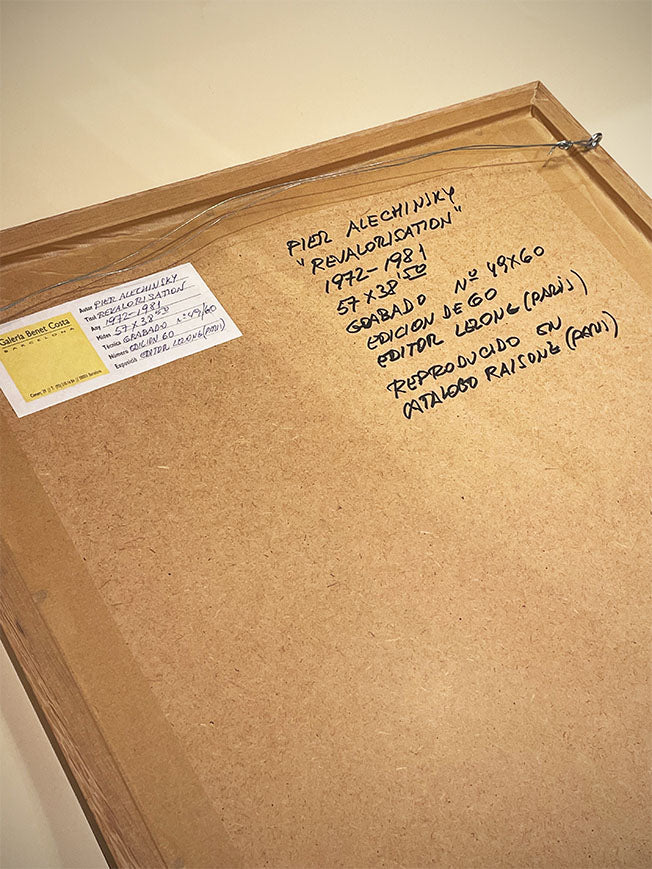 PIER ALECHINSKY
"REVALORISATION"
1972-1981
57 X 38'50
GRABADO Nº 49X60
EDICION DE 60
EDITOR LELONG (PARIS)
REPRODUCIDO EN
CATALOGO RAISONE (PARIS)
Galeria Benet Costa
BARCELONA
Autor PIER ALECHINSKY
Títol REVALORISATION
Any 1972-1981
Mides 57 X 38'50
Tècnica GRABADO Nº 49/60
Número EDICION 60
Exposició EDITOR LELONG (PARIS)